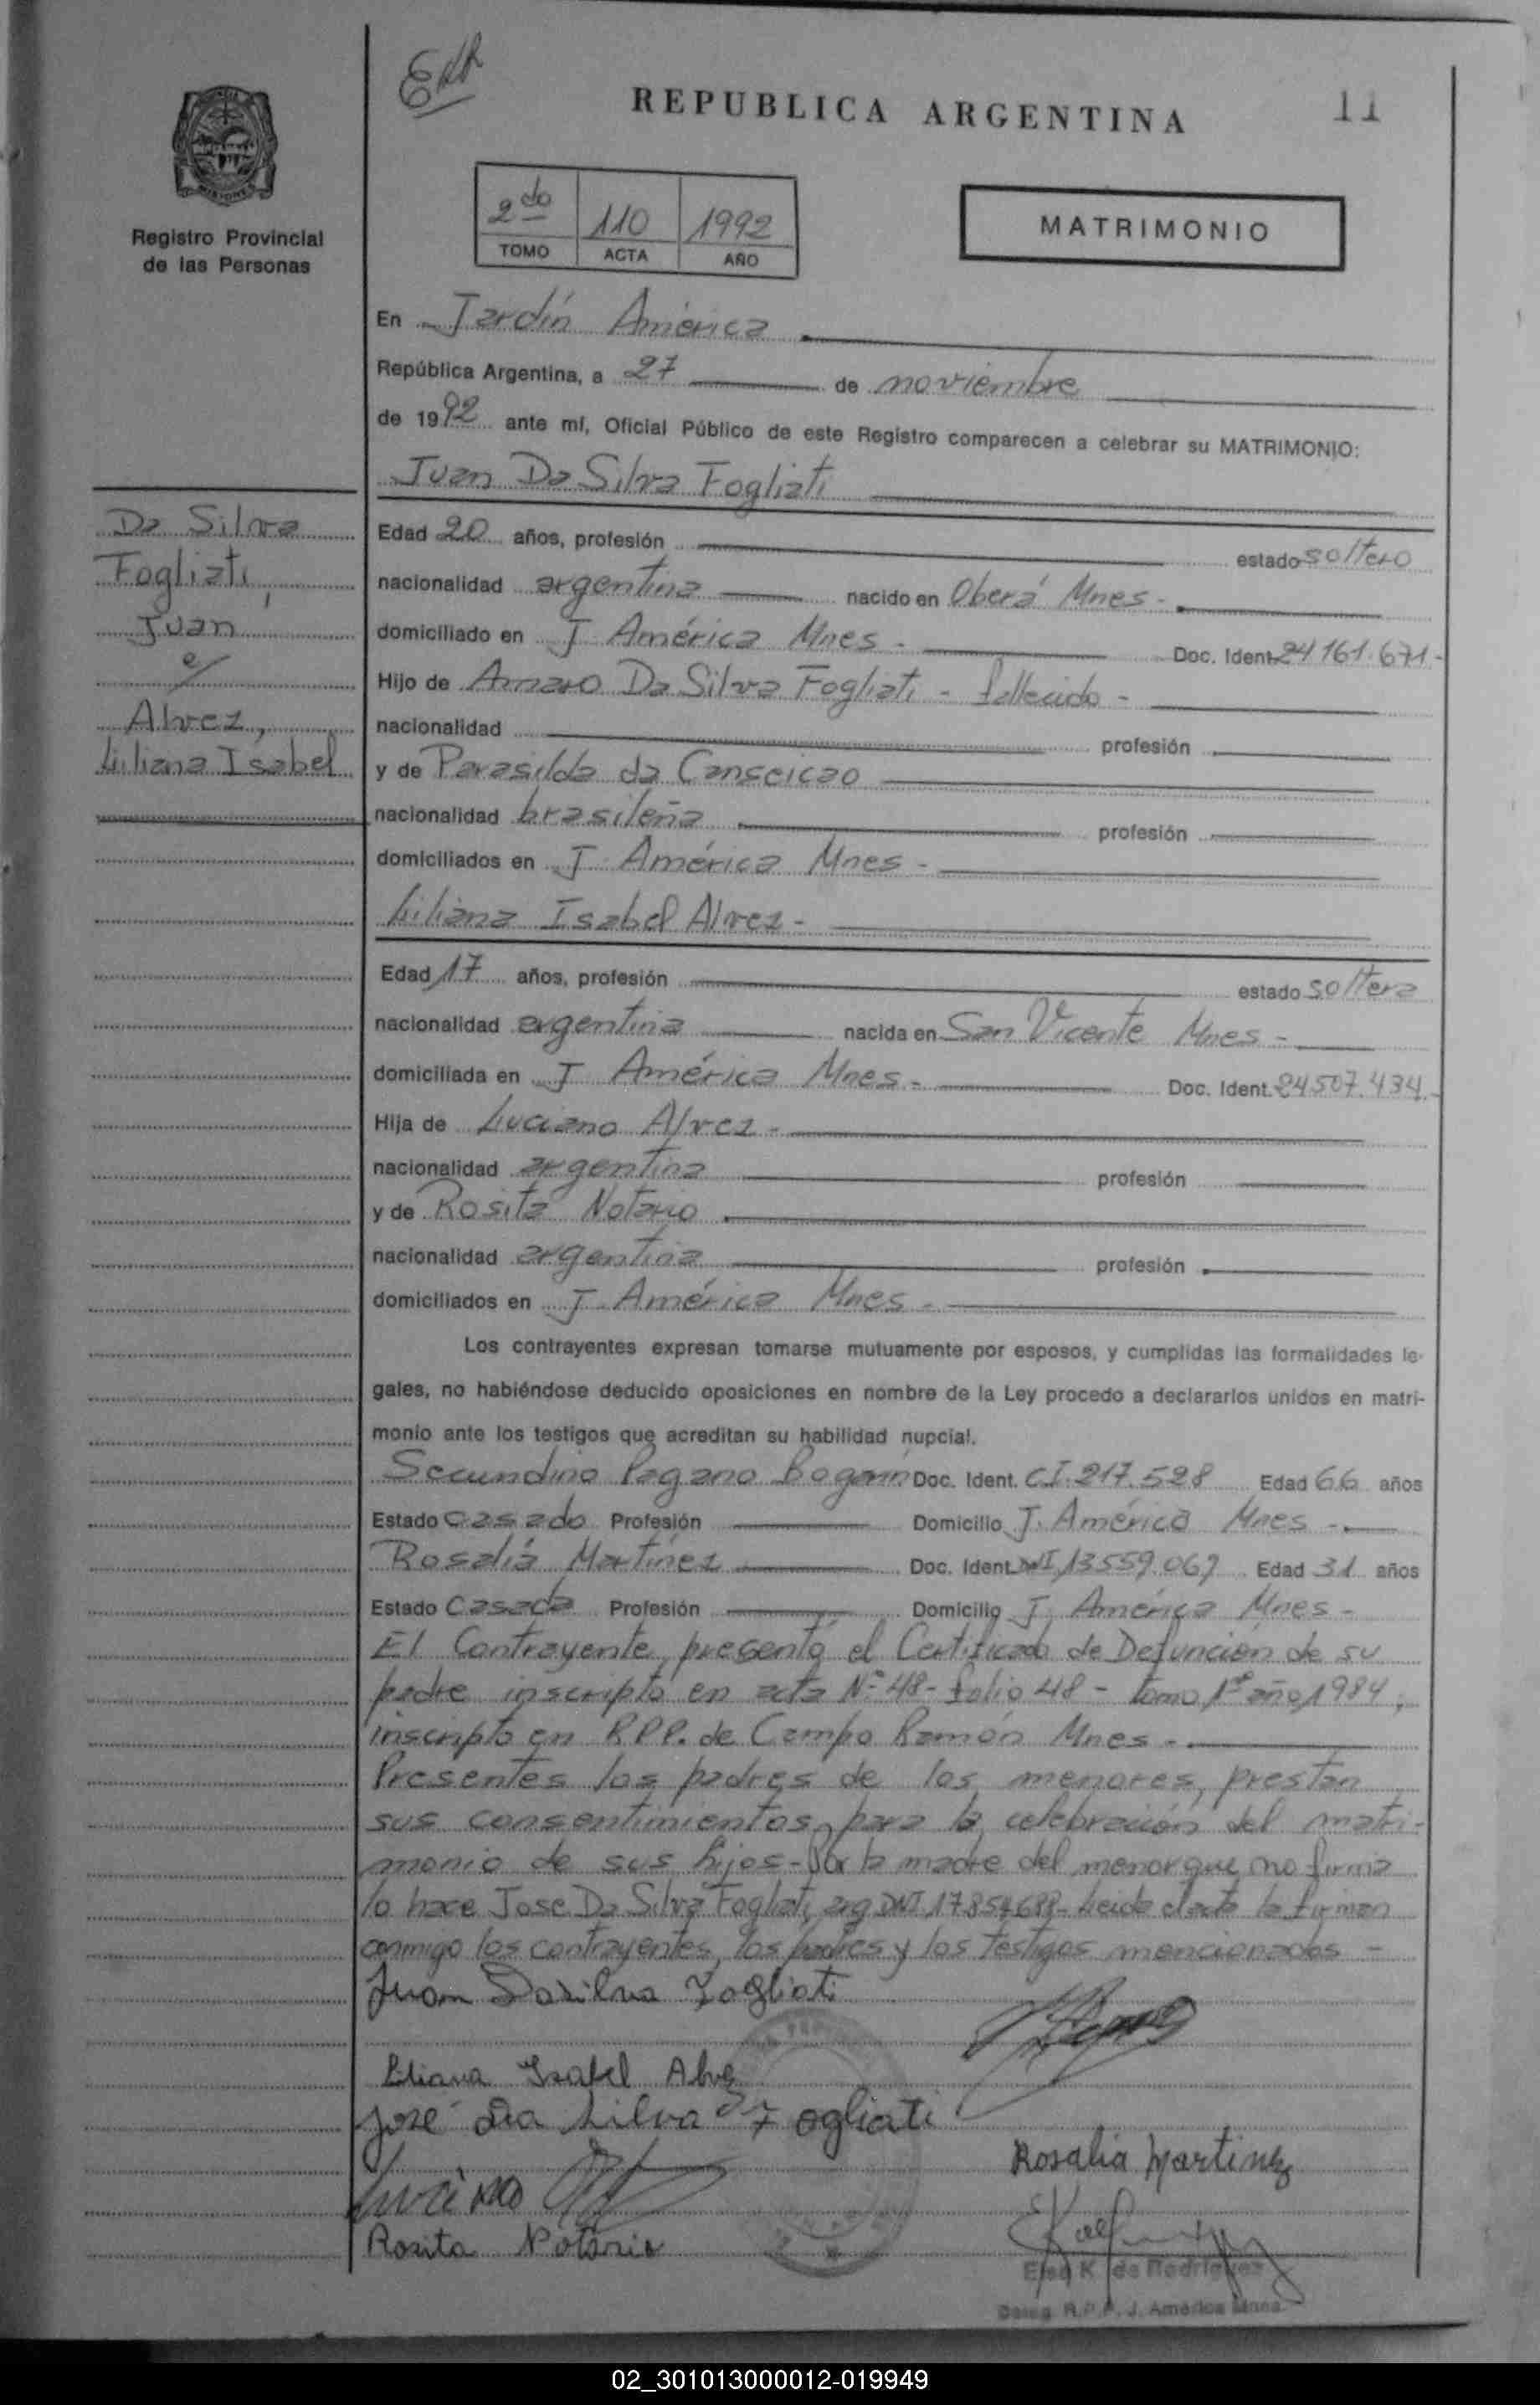 REPUBLICA ARGENTINA
11
Registro Provincial
de las Personas
2do 110 1992
TOMO ACTA AÑO
MATRIMONIO
En Jardín América
República Argentina, a 27 de noviembre
de 1992 ante mí, Oficial Público de este Registro comparecen a celebrar su MATRIMONIO:
Juan Da Silva Fogliati
Da Silva
Fogliati,
Juan
c/
Alvez,
Liliana Isabel
Edad 20 años, profesión estado soltero
nacionalidad argentina nacido en Oberá Mnes -
domiciliado en J América Mnes - Doc. Ident 24161.671-
Hijo de Amaro Da Silva Fogliati - fallecido -
nacionalidad profesión
y de Parasilda da Canseicao
nacionalidad brasileña profesión
domiciliados en J América Mnes -
Liliana Isabel Alvez -
Edad 17 años, profesión estado soltera
nacionalidad argentina nacida en San Vicente Mnes -
domiciliada en J América Mnes - Doc. Ident. 24507.434.-
Hija de Luciano Alvez -
nacionalidad argentina profesión
y de Rosita Notario
nacionalidad argentina profesión
domiciliados en J. América Mnes -
Los contrayentes expresan tomarse mutuamente por esposos, y cumplidas las formalidades le-
gales, no habiéndose deducido oposiciones en nombre de la Ley procedo a declararlos unidos en matri-
monio ante los testigos que acreditan su habilidad nupcial.
Secundino Pagano Bogarin Doc. Ident. CI.217.528 Edad 66 años
Estado casado Profesión Domicilio J. América Mnes -
Rosalia Martinez Doc. Ident DNI 13559.067 Edad 31 años
Estado Casada Profesión Domicilio J. América Mnes -
El Contrayente, presentó el Certificado de Defunción de su
padre inscripto en acta Nº 48 - folio 48 - tomo 1º año 1984,
inscripto en RPP. de Campo Ramón Mnes -
Presentes los padres de los menores, prestan
sus consentimientos para la celebración del matri-
monio de sus hijos - Por la madre del menor que no firma
lo hace Jose Da Silva Fogliati, arg DNI 17.854688 - Leida el acta la firman
conmigo los contrayentes, los padres y los testigos mencionados -
Juan Dasilva Fogliati
Liliana Isabel Alvez
José Da Silva Fogliati
Rosalia Martinez
Luciano
Rosita Notario
Elsa K. de Rodriguez
Deleg. R.P.P. J. América Mnes.
02_301013000012-019949